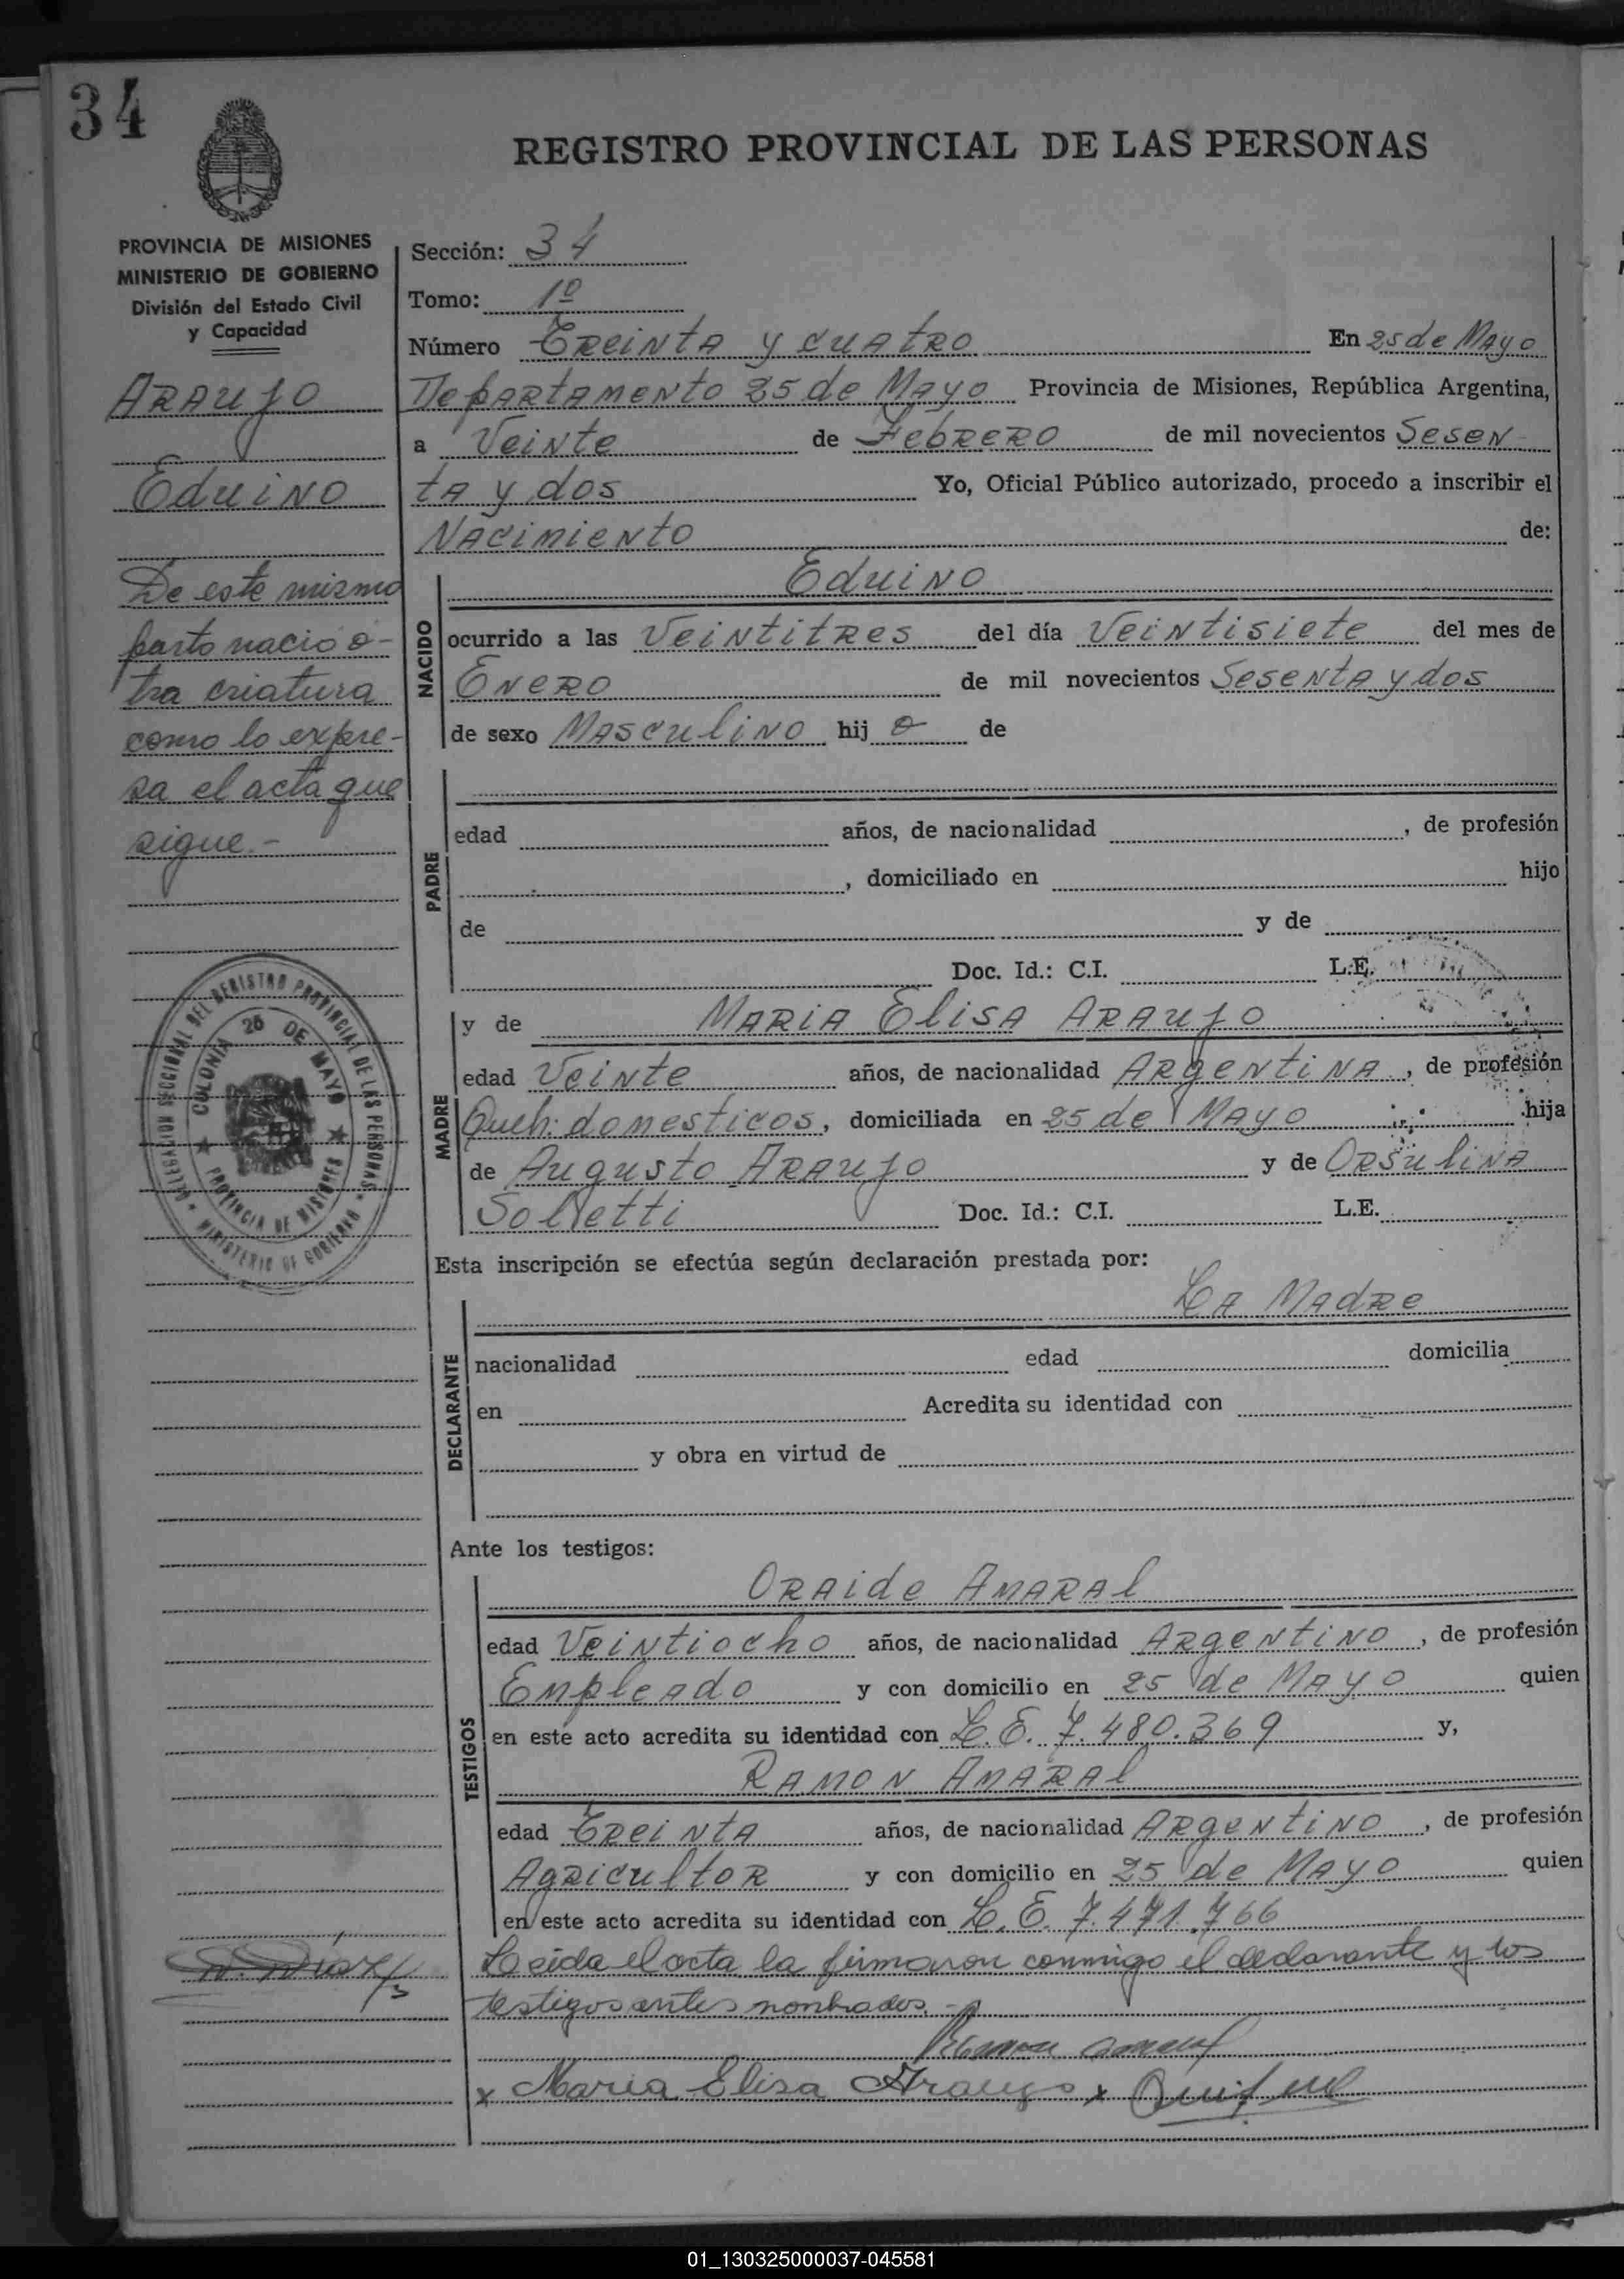 34
REGISTRO PROVINCIAL DE LAS PERSONAS
PROVINCIA DE MISIONES
MINISTERIO DE GOBIERNO
División del Estado Civil
y Capacidad
ARAUJO
Eduino
De este mismo
parto nació o-
tra criatura
como lo expre-
sa el acta que
sigue.-
DELEGACION SECCIONAL DEL REGISTRO PROVINCIAL DE LAS PERSONAS
MINISTERIO DE GOBIERNO
COLONIA 25 DE MAYO
PROVINCIA DE MISIONES
Sección: 34
Tomo: 1º
Número Treinta y cuatro En 25 de Mayo
Departamento 25 de Mayo Provincia de Misiones, República Argentina,
a Veinte de Febrero de mil novecientos Sesen
ta y dos Yo, Oficial Público autorizado, procedo a inscribir el
Nacimiento de:
NACIDO
Eduino
ocurrido a las Veintitres del día Veintisiete del mes de
Enero de mil novecientos Sesenta y dos
de sexo Masculino hij o de
PADRE
edad años, de nacionalidad , de profesión
, domiciliado en hijo
de y de
Doc. Id.: C.I. L.E.
MADRE
y de Maria Elisa Araujo
edad Veinte años, de nacionalidad Argentina, de profesión
Queh. domesticos, domiciliada en 25 de Mayo hija
de Augusto Araujo y de Orsulina
Solletti Doc. Id.: C.I. L.E.
Esta inscripción se efectúa según declaración prestada por:
DECLARANTE
La Madre
nacionalidad edad domicilia
en Acredita su identidad con
y obra en virtud de
Ante los testigos:
TESTIGOS
Oraide Amaral
edad Veintiocho años, de nacionalidad Argentino, de profesión
Empleado y con domicilio en 25 de Mayo quien
en este acto acredita su identidad con L.E. 7.480.369 y,
Ramon Amaral
edad Treinta años, de nacionalidad Argentino, de profesión
Agricultor y con domicilio en 25 de Mayo quien
en este acto acredita su identidad con L.E. 7.471.766
Leida el acta la firmaron conmigo el declarante y los
testigos antes nombrados.-
x Maria Elisa Araujo x
01_130325000037-045581